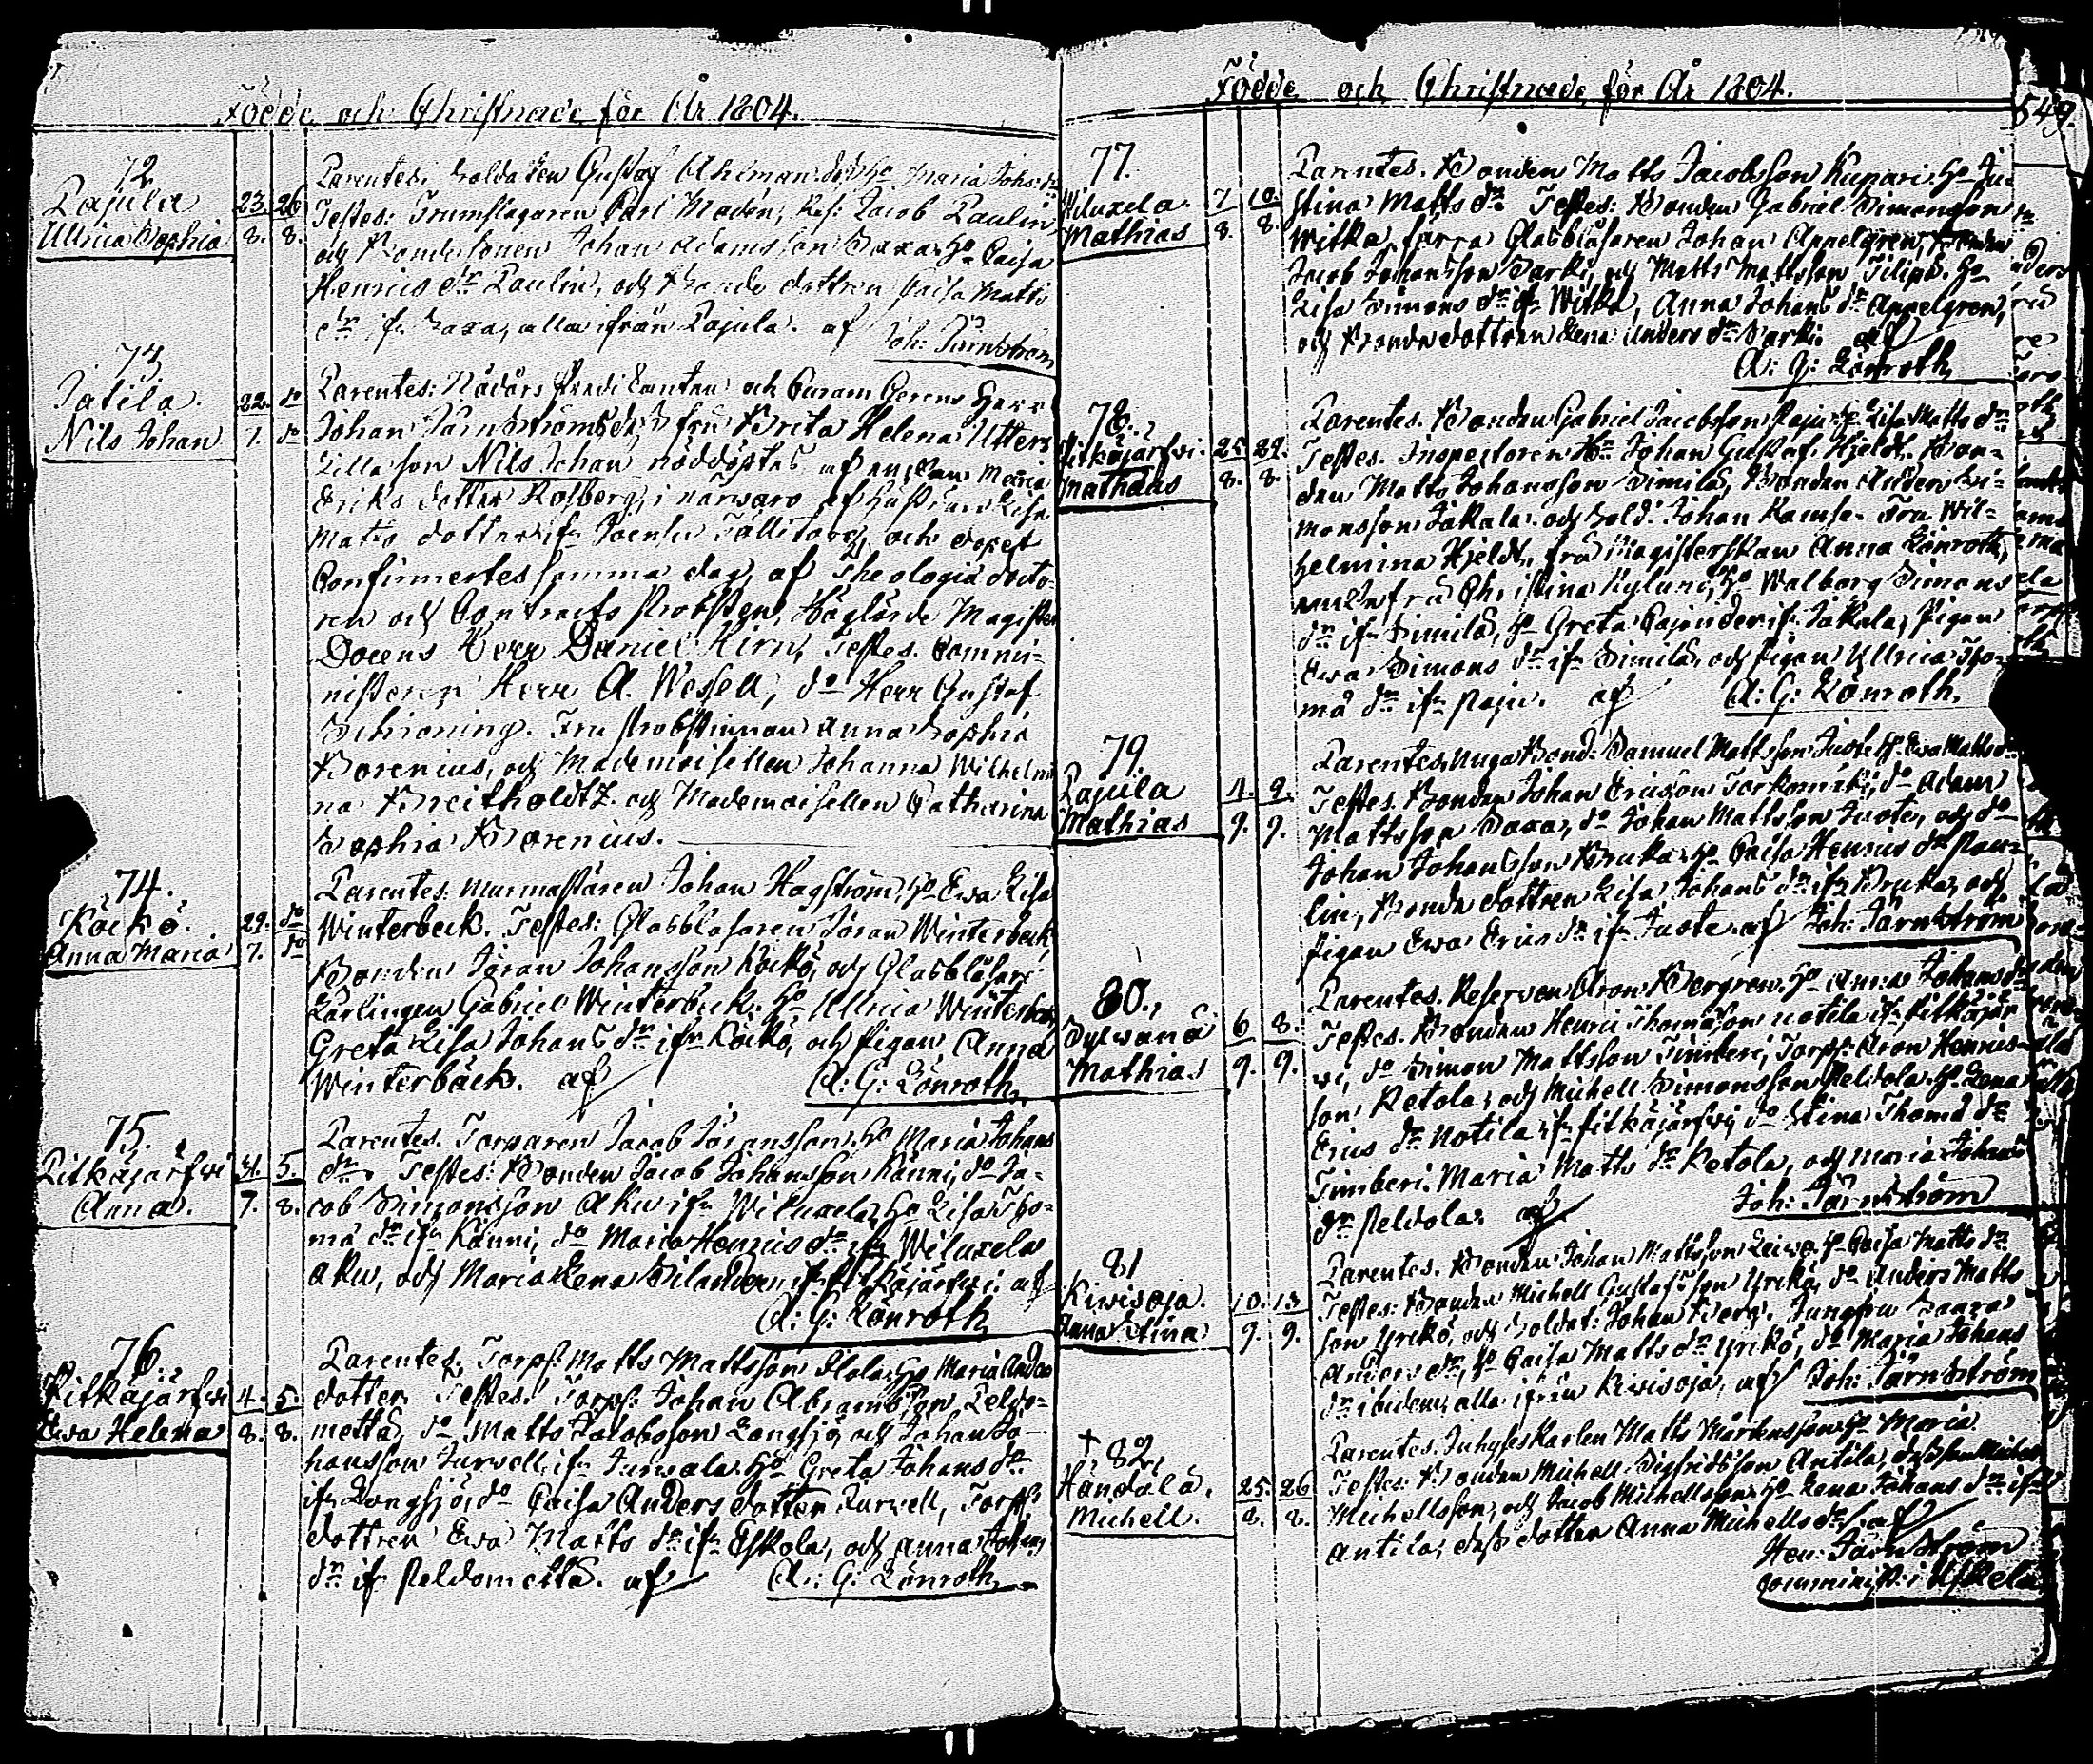 Födde och Christnade för År 1804.
72
Pajula 23 26
Ullrica Sophia 8. 8.
Parentes: Soldaten Gustaf Ahlman Maria Johs dr
Testes: Trumslagaren Carl Modén, Res: Jacob Paulin,
och Bondesonen Johan Adamsson Saxa, Ho Caisa
Henrics dr Paulin, och Bonde dottren Caisa Matts
dr ifn Saxa, alla ifrån Pajula. af
Joh: Järnström
73
Patila. 22. do
Nils Johan 7. do
Parentes: Nådårs Predikanten och Curam Gerens Herr
Johan Järnströms och fru Brita Helena Utters
Lilla son Nils Johan nöddöptes af enkan Maria
Eriks dotter Rosberg, i närwaro af hustrun Lisa
Matts dotter ifn och dopet
Confirmertes samma dag af Theologiæ docto-
ren och Contracts Probsten, Höglärde Magister
Docens Herr Daniel Hirn, Testes. Commi-
nistern Herr A. Wesell, do Herr Gustaf
Schroning. Fru Probstinnan Anna Sophia
Borenius, och Mademoisellen Johanna Wilhelmi
na Breitholdtz och Mademoisellen Catharina
Sophia Borenius.
74.
Koeko. 29. do
Anna Maria 7. do
Parentes: Murmästaren Johan Hagström, Ho Ewa Lisa
Winterbeck. Testes: Glasblåsaren Jöran Winterbeck,
Bonden Jöran Johansson Koekö, och Glasblåsare
Lärlingen Gabriel Winterbeck. Ho Ullrica Winterbeck,
Greta Lisa Johans dr ifn Koekö, och Pigan Anna
Winterbäck. af A: G: Lönroth,
75.
Pitkäjärfwi 31. 5.
Anna. 7. 8.
Parentes. Torparen Jacob Göransson, Ho Maria Johans
dr. Testes: Bonden Jacob Johansson Känni, do Ja-
cob Simonsson Aku ifn Wiluxela, Ho Lisa Tho-
mä dr ifn Känni, do Maria Henrics dr ifn Wiluxela
Aku, och Maria Lena Silander, ifn Pitkäjärfwi. af
A: G: Lönroth
76.
Pitkäjärfwi 4. 5.
Ewa Helena 8. 8.
Parentes. Torp: Matts Mattsson Ilola, Ho Maria Anders
dotter. Testes. Torp: Johan Abramsson Peldo-
mettä, do Matts Jacobsson Långsjö, och Johan Jo-
hansson Jurvell, ifn Jurvala. Ho Greta Johans dr
ifn Långsjö, do Caisa Anders dotter Jurvell, Torps
dottren Ewa Matts dr ifn Eskola, och Anna Johans
dr ifn Peldomettä. af A: G: Lönroth,
Födde och Christnade för År 1804.
549.
77.
Wiluxela. 7 10.
Mathias 8. 8.
Parentes. Bonden Matts Jacobsson Kupari. Ho Ju-
stina Matts dr. Testes: Bonden Gabriel Simonsson
Witka, förra Glasblåsaren Johan Appelgren, Bonden
Jacob Johansson Sarki, och Matts Mattsson Filipo. Ho
Lisa Simons dr ifn Witka, Anna Johans dr Appelgren,
och Bonde dottren Lena Anders dr Sarki. af
A: G: Lönroth,
78.
Pitkäjärfwi. 25. 29.
Mathias 8. 8.
Parentes. Bonden Gabriel Jacobsson Paju, Ho Lisa Matts dr
Testes. Inspectoren Hr Johan Gustaf Hjeldt, Bon-
den Matts Johansson Simila, Bonden Anders Si-
monsson Jakala, och Sold: Johan Kamse. Fru Wil-
helmina Hjeldt, fru Magisterskan Anna Lönroth,
fru Christina Nylund, Ho Walborg Simons
dr ifn Similä, Ho Greta Pajander ifn Jakala, Pigan
Ewa Simons dr ifn Similä, och Pigan Ullrica Tho-
mä dr ifn Paju. af A: G: Lönroth.
79.
Pajula 4. 9.
Mathias 9. 9.
Parentes, Unga Bond: Samuel Mattsson Juote Ho Ewa Matts dr
Testes. Bonden Johan Ericsson Torkomäki, do Adam
Mattsson Saxa, do Johan Mattsson Juote, och do
Johan Johansson Bruka, Ho Caisa Henrics dr Pau-
lin, Bonde dottren Lisa Johans dr ifn Bruka, och
Pigan Ewa Erics dr ifn Juote. af Joh: Järnström
80.
Sylwana 6 8.
Mathias 9. 9.
Parentes. Reserven Aron Bergren. Ho Anna Johans dr
Testes. Bonden Henric Thomasson Notila ifn Pitkäjär
wi, do Simon Mattsson Timberi, Torp: Aron Henrics-
son Ketola, och Michell Simonsson Peldola. Ho Lena
Erics dr Notila ifn Pitkäjärfwi, do Stina Thomä dr
Timberi. Maria Matts dr Ketola, och Maria Johans
dr Peldola. af Joh: Järnström
81
Kiwisoja. 10. 13
Anna Stina 9. 9.
Parentes. Bonden Johan Mattsson Leiwo. Ho Caisa Matts dr
Testes: Bonden Michell Gustafsson Yrckö, do Anders Matts
son Yrckö, och Soldat: Johan Berg. Jungfru Saara
Anders dr, Ho Caisa Matts dr Yrckö, do Maria Johans
dr ibidem, alla ifrån Kiwisoja, af Joh: Järnström
† 82,
Handala. 25. 26
Michell. 8. 8.
Parentes. Inhyseskarlen Matts Mårtensson Ho Maria
Testes: Bonden Michell Sigfridsson Antila, dess son Michel
Michellsson, och Jacob Michellsson, Ho Lena Johans dr ifn
Antila, dess dotter Anna Michells dr. af
Hen: Järnström
Comminist: i Uskela